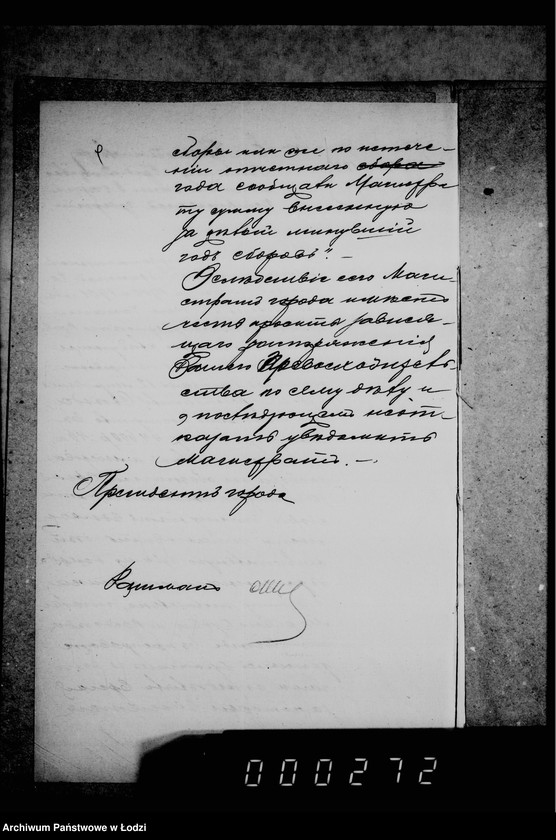 сборы или же по истече-
нии отчетнаго сбора
года сообщать Магистра
ту сумму внесенную
за целый минувший
годъ сборовъ".-
Вследствiе сего Маги-
стратъ города имеетъ
честь просить завися-
щаго распоряженiя
Вашего Превосходитель-
ства по сему делу и
о последующемъ неот-
казать уведомить
Магистратъ. -
Президентъ города
000272
Archiwum Państwowe w Łodzi